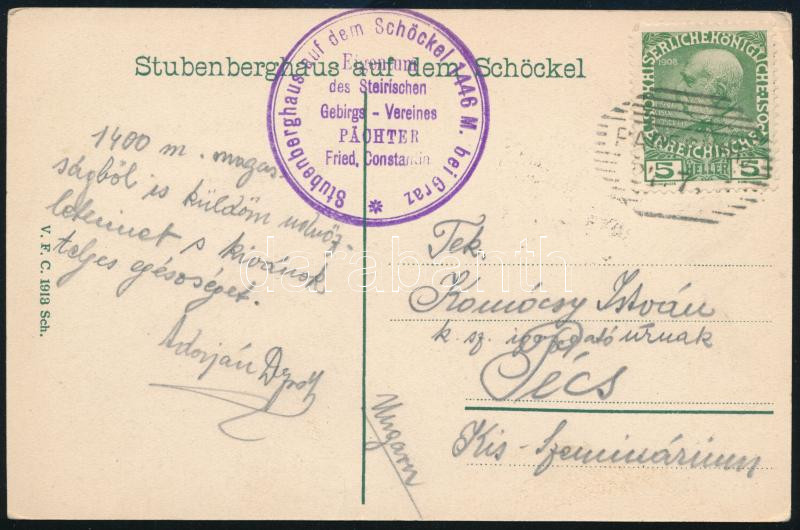 Stubenberghaus auf dem Schöckel
Stubenberghaus auf dem Schöckel 1446 M. bei Graz
Eigentum
des Steirischen
Gebirgs - Vereines
PÄCHTER
Fried. Constantin
1908
5 HELLER 5
1400 m. magas-
ságból is küldöm üdvöz-
letemet s kivánok
teljes egésséget.
Adorján
V. F. C. 1913 Sch.
Tek.
Komócsy István
k. sz. igazgató úrnak
Pécs
Kis-Szeminárium
Ungarn
darabanth